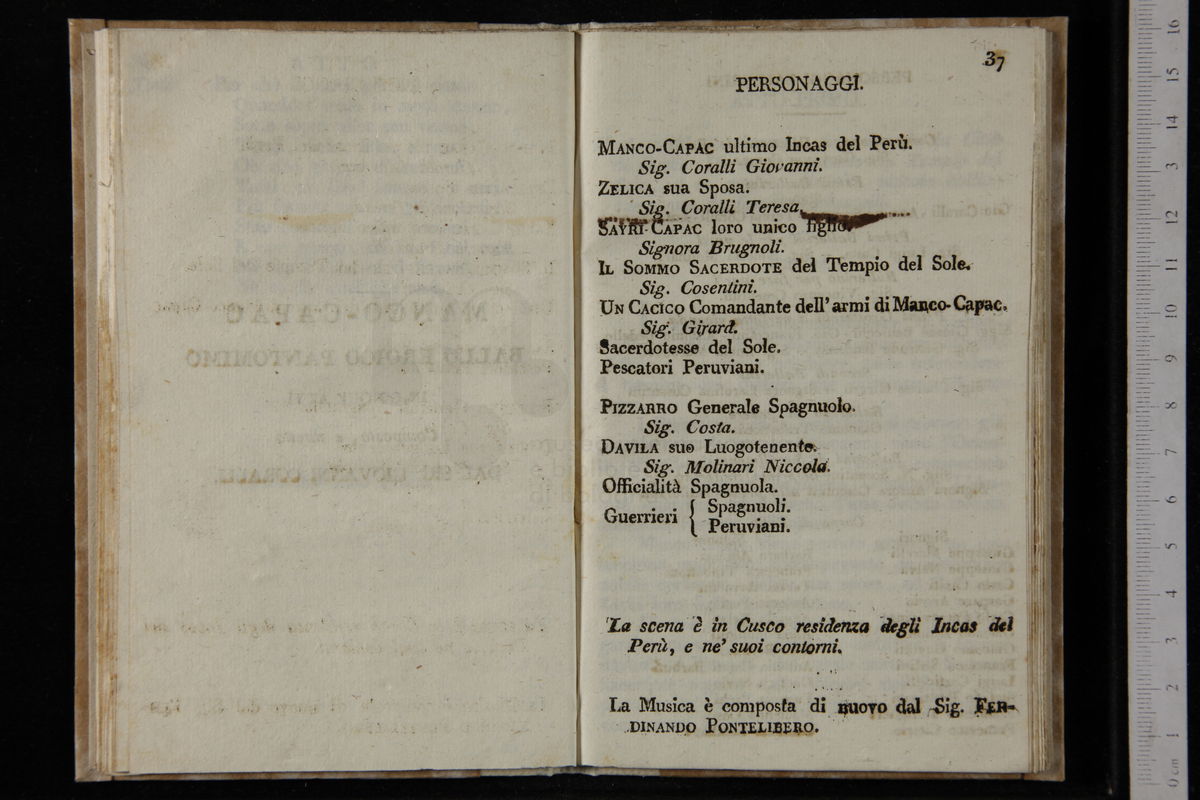 37
PERSONAGGI.
MANCO-CAPAC ultimo Incas del Perù.
Sig. Coralli Giovanni.
ZELICA sua Sposa.
Sig. Coralli Teresa.
SAYRI-CAPAC loro unico figlio.
Signora Brugnoli.
IL SOMMO SACERDOTE del Tempio del Sole.
Sig. Cosentini.
UN CACICO Comandante dell' armi di Manco-Capac.
Sig. Girard.
Sacerdotesse del Sole.
Pescatori Peruviani.
PIZZARRO Generale Spagnuolo.
Sig. Costa.
DAVILA suo Luogotenente.
Sig. Molinari Niccola.
Officialità Spagnuola.
Guerrieri { Spagnuoli.
Peruviani.
La scena è in Cusco residenza degli Incas del
Perù, e ne' suoi contorni.
La Musica è composta di nuovo dal Sig. FER-
DINANDO PONTELIBERO.
MANCO-CAPAC
BALLO EROICO PANTOMIMO
DAL SIG. GIOVANNI CORALLI
0 cm 1 2 3 4 5 6 7 8 9 10 11 12 13 14 15 16